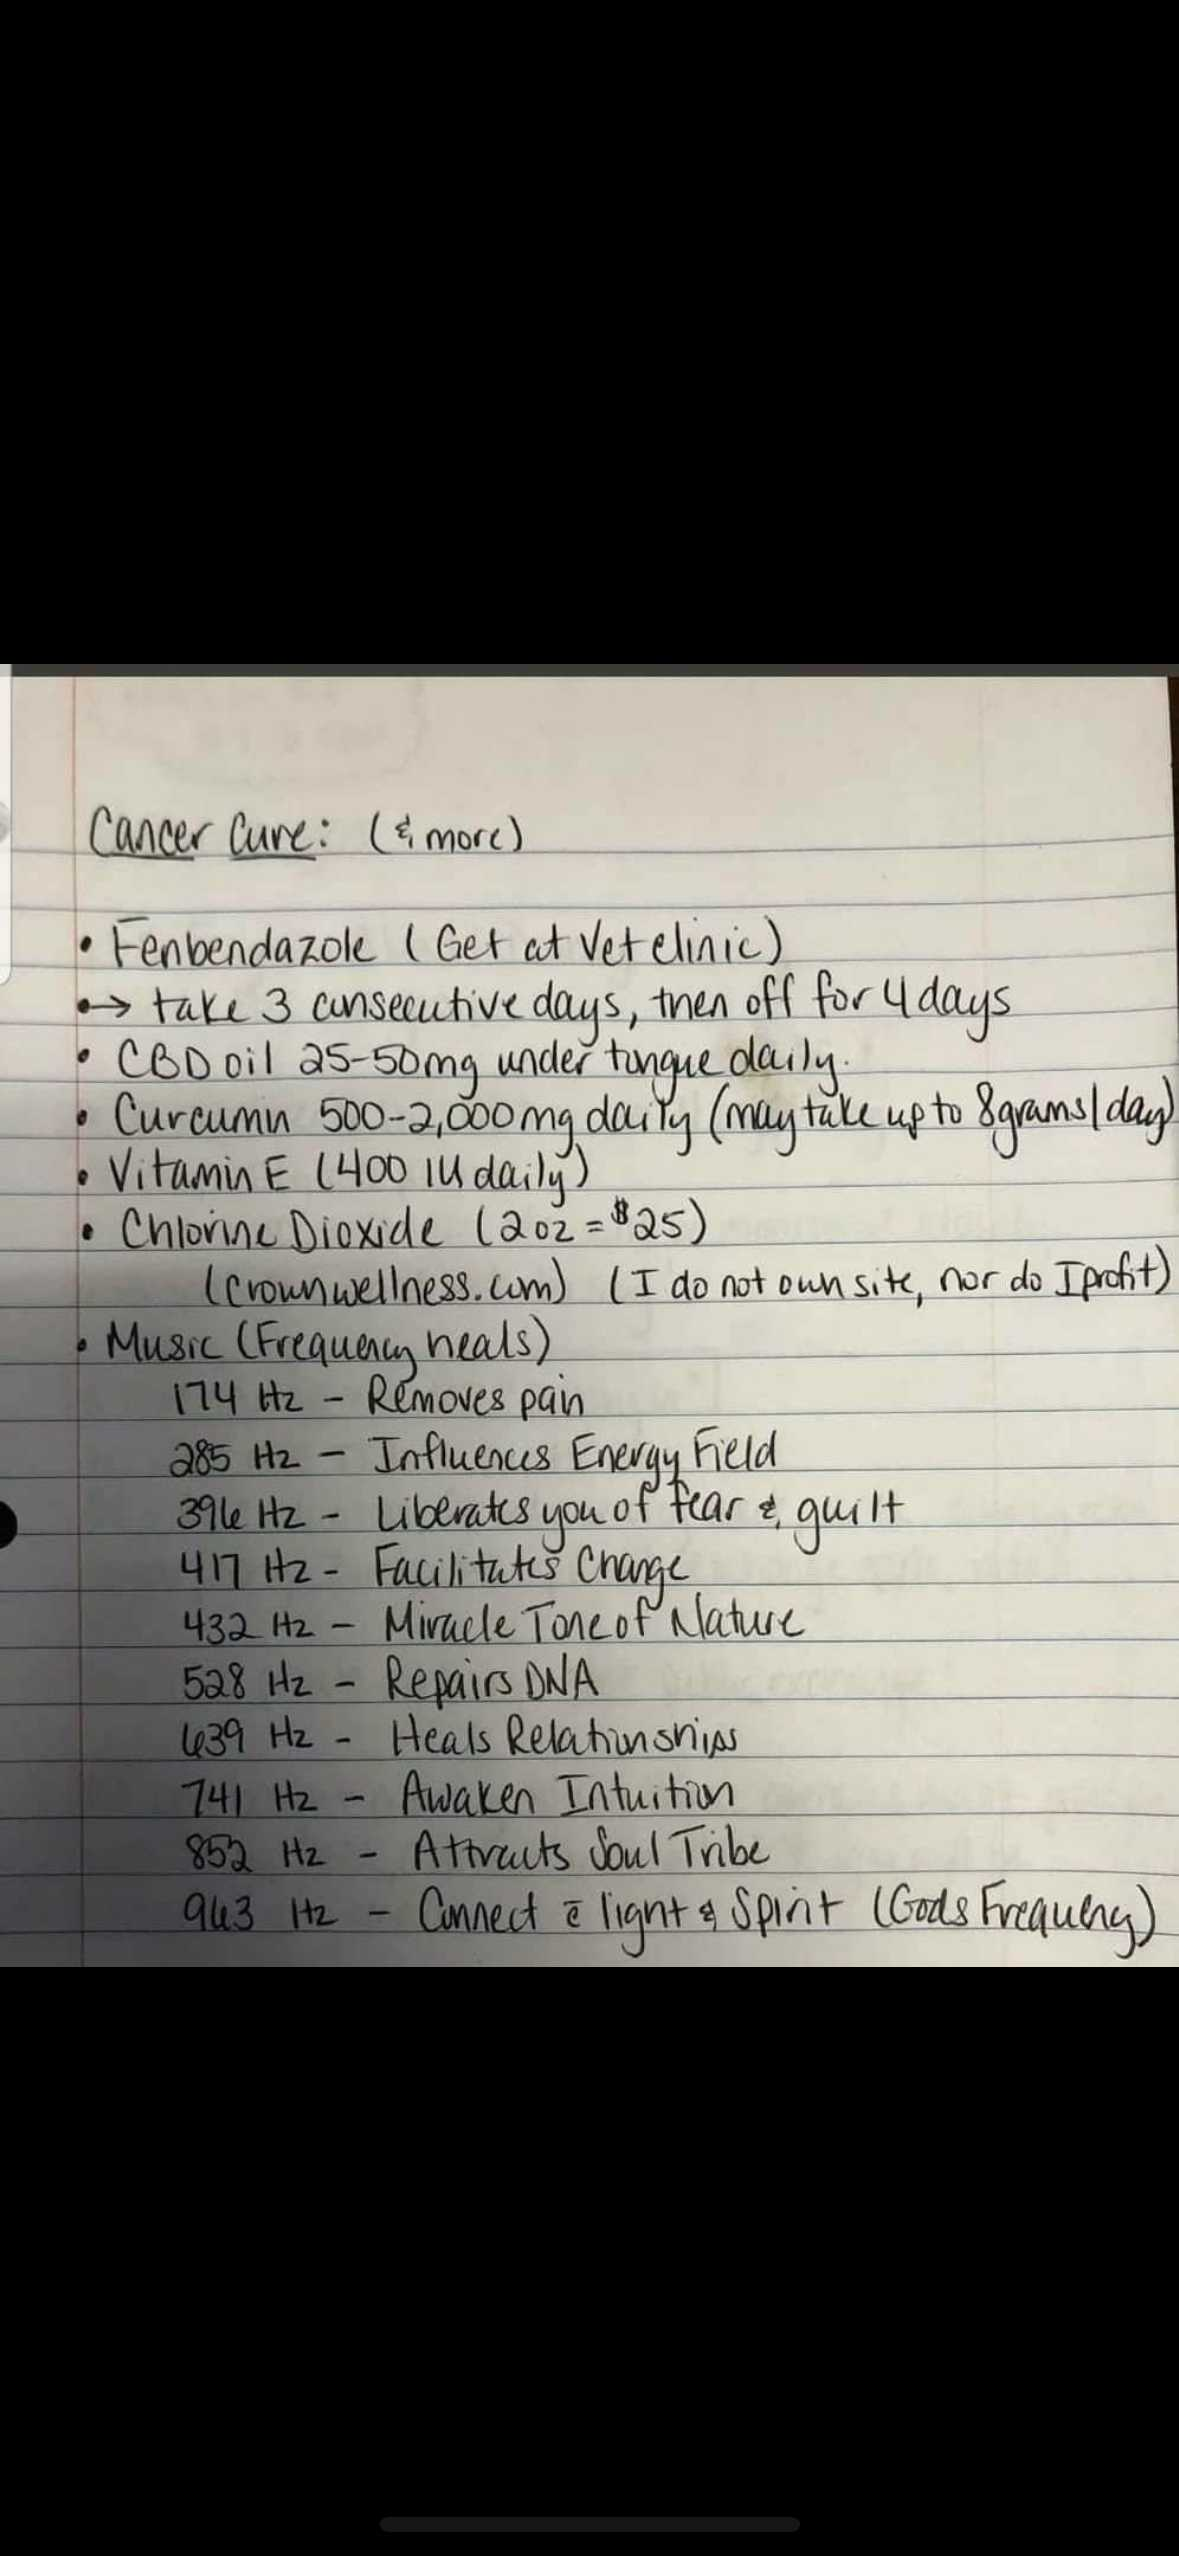 Cancer Cure: (& more)
• Fenbendazole (Get at Vet clinic)
•→ take 3 consecutive days, then off for 4 days
• CBD oil 25-50mg under tongue daily.
• Curcumin 500-2,000mg daily (may take up to 8grams/day)
• Vitamin E (400 IU daily)
• Chlorine Dioxide (2oz = $25)
(crownwellness.com) (I do not own site, nor do I profit)
• Music (Frequency heals)
174 Hz - Removes pain
285 Hz - Influences Energy Field
396 Hz - Liberates you of fear & guilt
417 Hz - Facilitates Change
432 Hz - Miracle Tone of Nature
528 Hz - Repairs DNA
639 Hz - Heals Relationships
741 Hz - Awaken Intuition
852 Hz - Attracts Soul Tribe
963 Hz - Connect c̄ light & Spirit (Gods Frequency)